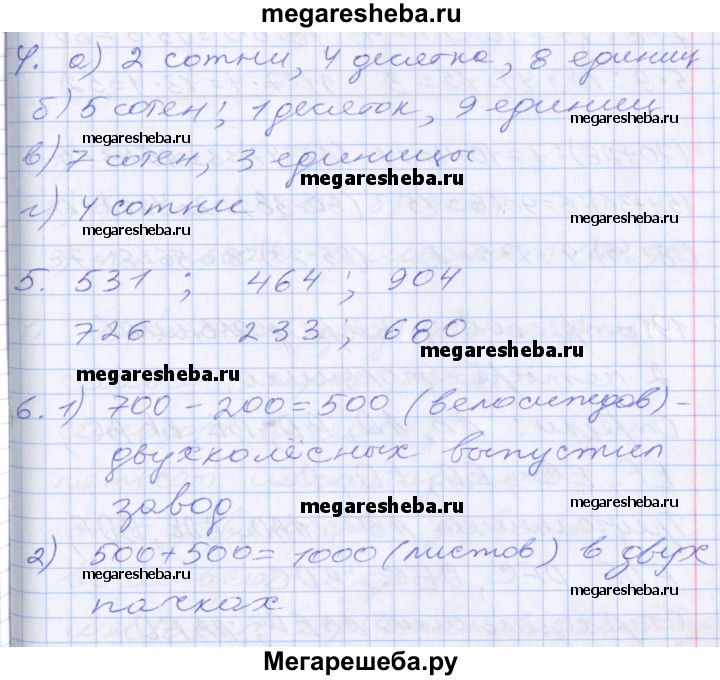 megaresheba.ru
4. а) 2 сотни, 4 десятка, 8 единиц
б) 5 сотен; 1 десяток, 9 единиц
megaresheba.ru megaresheba.ru
в) 7 сотен, 3 единицы
megaresheba.ru
г) 4 сотни
megaresheba.ru
5. 531 ; 464 ; 904
726 233 ; 680
megaresheba.ru
megaresheba.ru
6. 1) 700 - 200 = 500 (велосипедов) -
двухколёсных выпустил
завод megaresheba.ru megaresheba.ru
2) 500 + 500 = 1000 (листов) в двух
megaresheba.ru megaresheba.ru
пачках
Мегарешеба.ру